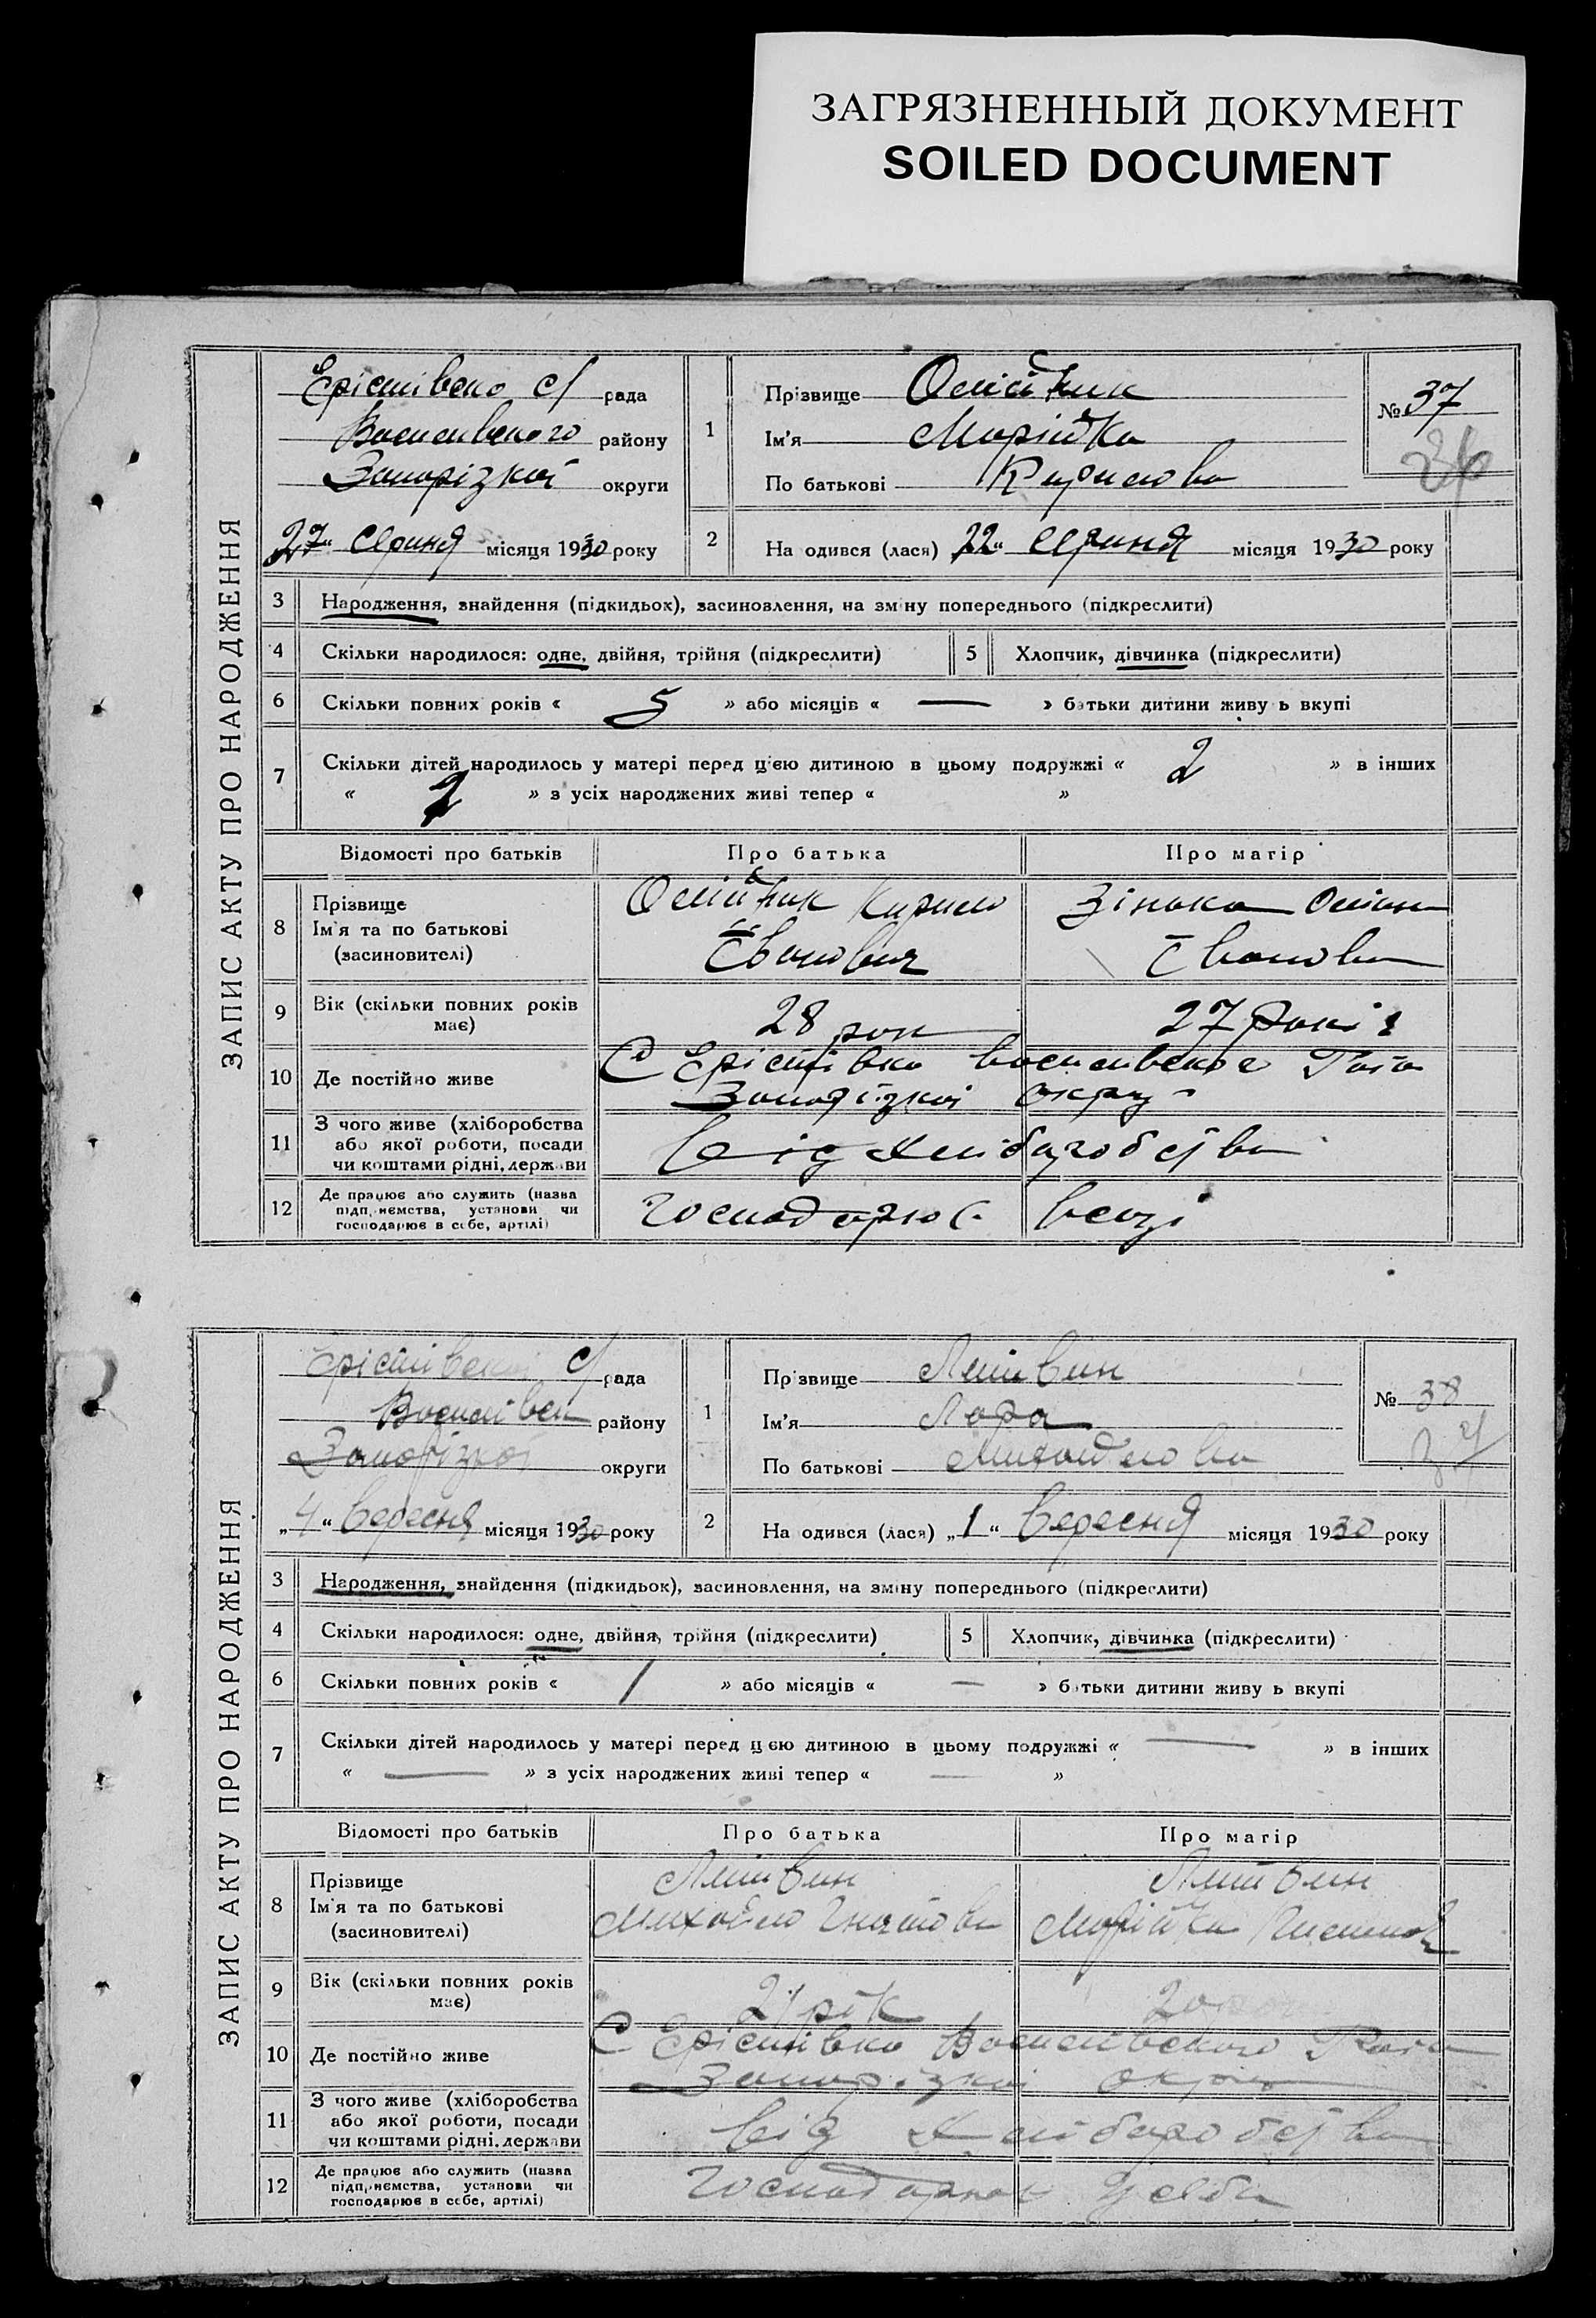 ЗАГРЯЗНЕННЫЙ ДОКУМЕНТ
SOILED DOCUMENT
ЗАПИС АКТУ ПРО НАРОДЖЕННЯ
Ерістівсько с/ рада
району
Запорізької округи
27 серпня місяця 1930 року
1
Прізвище Олійник
Ім'я Марійка
По батькові Кирилова
№ 37
36
2
На одився (лася) 22 серпня місяця 1930 року
3 Народження, знайдення (підкидьок), засиновлення, на зміну попереднього (підкреслити)
4 Скільки народилося: одне, двійня, трійня (підкреслити)
5 Хлопчик, дівчинка (підкреслити)
6 Скільки повних років « 5 » або місяців « — » батьки дитини живу ь вкупі
7 Скільки дітей народилось у матері перед цією дитиною в цьому подружжі « 2 » в інших
« 2 » з усіх народжених живі тепер « »
Відомості про батьків Про батька Про матір
8 Прізвище
Ім'я та по батькові
(засновителі)
Олійник Кирило
Іванович
Зінька
Іванова
9 Вік (скільки повних років має)
28 рок
27 років
10 Де постійно живе
С Ерістівка
Запорізкої округ
11 З чого живе (хліборобства
або якої роботи, посади
чи коштами рідні, держави
Від хліборобства
12 Де працює або служить (назва
підприємства, установи чи
господарює в себе, артілі)
господарює в себе
ЗАПИС АКТУ ПРО НАРОДЖЕННЯ
Ерістівсько с/ рада
району
Запорізкої округи
„4“ вересня місяця 1930 року
1
Прізвище Литвин
Ім'я Лора
По батькові Михайлова
№ 38
37
2
На одився (лася) „1“ вересня місяця 1930 року
3 Народження, знайдення (підкидьок), засиновлення, на зміну попереднього (підкреслити)
4 Скільки народилося: одне, двійня, трійня (підкреслити)
5 Хлопчик, дівчинка (підкреслити)
6 Скільки повних років « 1 » або місяців « — » батьки дитини живу ь вкупі
7 Скільки дітей народилось у матері перед цією дитиною в цьому подружжі « — » в інших
« — » з усіх народжених живі тепер « — »
Відомості про батьків Про батька Про матір
8 Прізвище
Ім'я та по батькові
(засновителі)
Литвин
Михайло Гнатова
Литвин
Марійка
9 Вік (скільки повних років має)
21 рік
20
10 Де постійно живе
С Ерістівка
Запорізкої округ
11 З чого живе (хліборобства
або якої роботи, посади
чи коштами рідні, держави
Від хліборобства
12 Де працює або служить (назва
підприємства, установи чи
господарює в себе, артілі)
господарює у себе